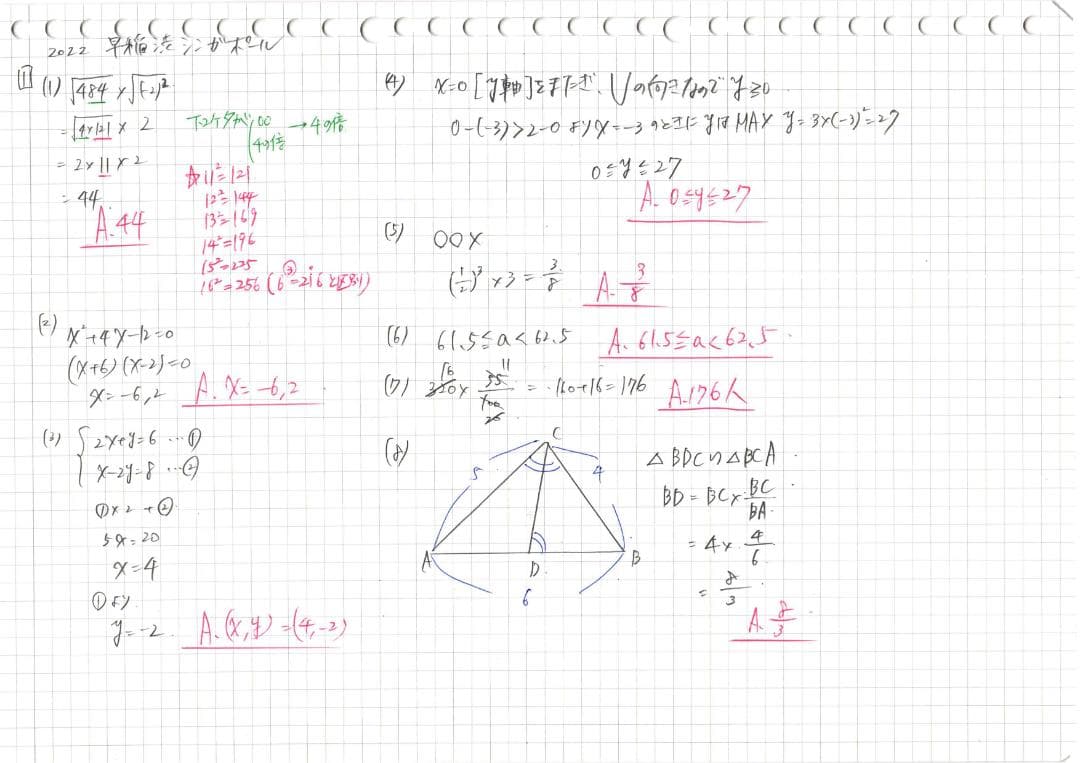 2022 早稲渋シンガポール
1 (1) √484 × √(-2)²
= √4×121 × 2
= 2×11×2
= 44
A. 44
下2ケタが 00 → 4の倍
4の倍
11² = 121
12² = 144
13² = 169
14² = 196
15² = 225
16² = 256 (6³ = 216 と区別)
(2) x²+4x-12=0
(x+6)(x-2)=0
x = -6, 2
A. x = -6, 2
(3) { 2x+y=6 …①
x-2y=8 …②
①×2+②
5x = 20
x = 4
①より
y = -2
A. (x, y) = (4, -2)
(4) x=0 [y軸]をまたぎ、∪の向きなので y≧0
0-(-3)>2-0 より x=-3 のときに yはMAX y=3×(-3)²=27
0≦y≦27
A. 0≦y≦27
(5) ○○×
(1/2)³ × 3 = 3/8
A. 3/8
(6) 61.5≦a<62.5
A. 61.5≦a<62.5
(7) 320 × 55/100 = 160+16 = 176
16
11
25
A. 176人
(8)
C
5
4
A
D
B
6
△BDC∽△BCA
BD = BC × BC/BA
= 4 × 4/6
= 8/3
A. 8/3